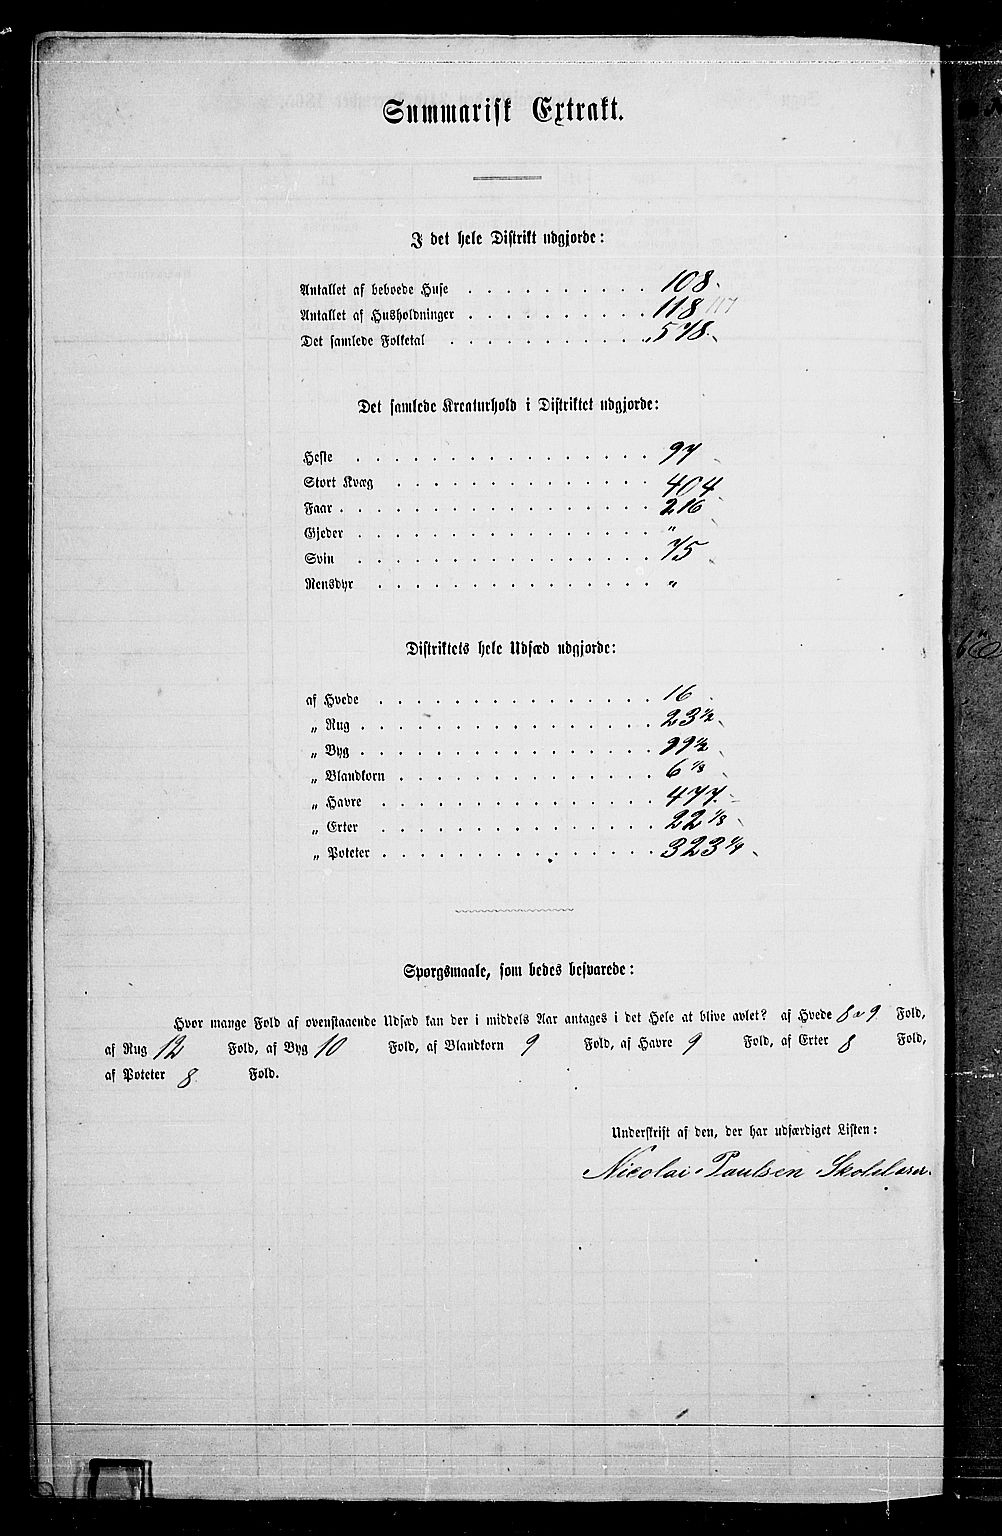 Summarisk Extrakt.
I det hele Distrikt udgjorde:
Antallet af beboede Huse . . . . . . . . . . 108.
Antallet af Husholdninger . . . . . . . . . . 118 117
Det samlede Folketal . . . . . . . . . . . 578.
Det samlede Kreaturhold i Distriktet udgjorde:
Heste . . . . . . . . . . . . . . . . 97
Stort Kvæg . . . . . . . . . . . . . . 404
Faar . . . . . . . . . . . . . . . . . 216
Gjeder . . . . . . . . . . . . . . . . "
Svin . . . . . . . . . . . . . . . . 75
Rensdyr . . . . . . . . . . . . . . . "
Distriktets hele Udsæd udgjorde:
af Hvede . . . . . . . . . . . . . . . 16
„ Rug . . . . . . . . . . . . . . . . 23 ½
„ Byg . . . . . . . . . . . . . . . . 99 ½
„ Blandkorn . . . . . . . . . . . . . . 6 ⅛
„ Havre . . . . . . . . . . . . . . . 477.
„ Erter . . . . . . . . . . . . . . . 22 ⅛
„ Poteter . . . . . . . . . . . . . . . 323 ¼
Spørgsmaale, som bedes besvarede:
Hvor mange Fold af ovenstaaende Udsæd kan der i middels Aar antages i det Hele at blive avlet? af Hvede 8 a 9 Fold,
af Rug 12 Fold, af Byg 10 Fold, af Blandkorn 9 Fold, af Havre 9 Fold, af Erter 8 Fold,
af Poteter 8 Fold.
Underskrift af den, der har udfærdiget Listen:
Nicolai Paulsen Skolelærer.